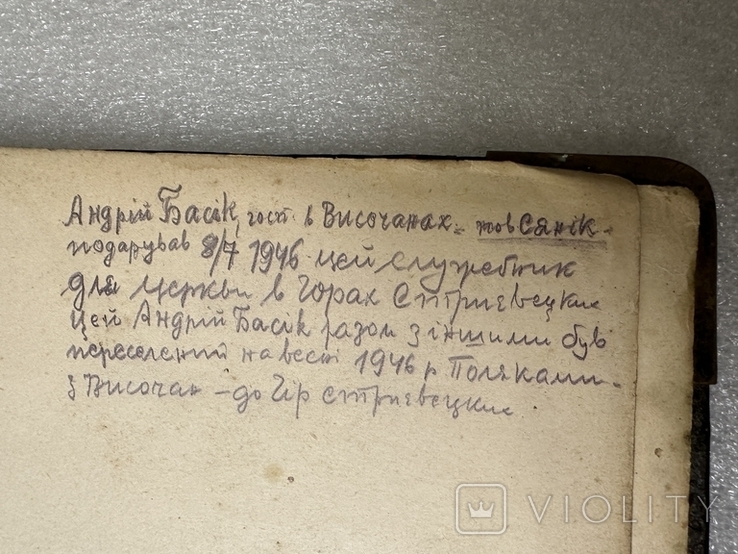 Андрій Басік, госп в Височанах - пов Сянік -
подарував 8/7 1946 цей служебник
для церкви в Горах Стриєвецких
Цей Андрій Басік разом з іншими був
переселений на весні 1946 р Поляками -
з Височан - до Гір Стриєвецких
VIOLITY